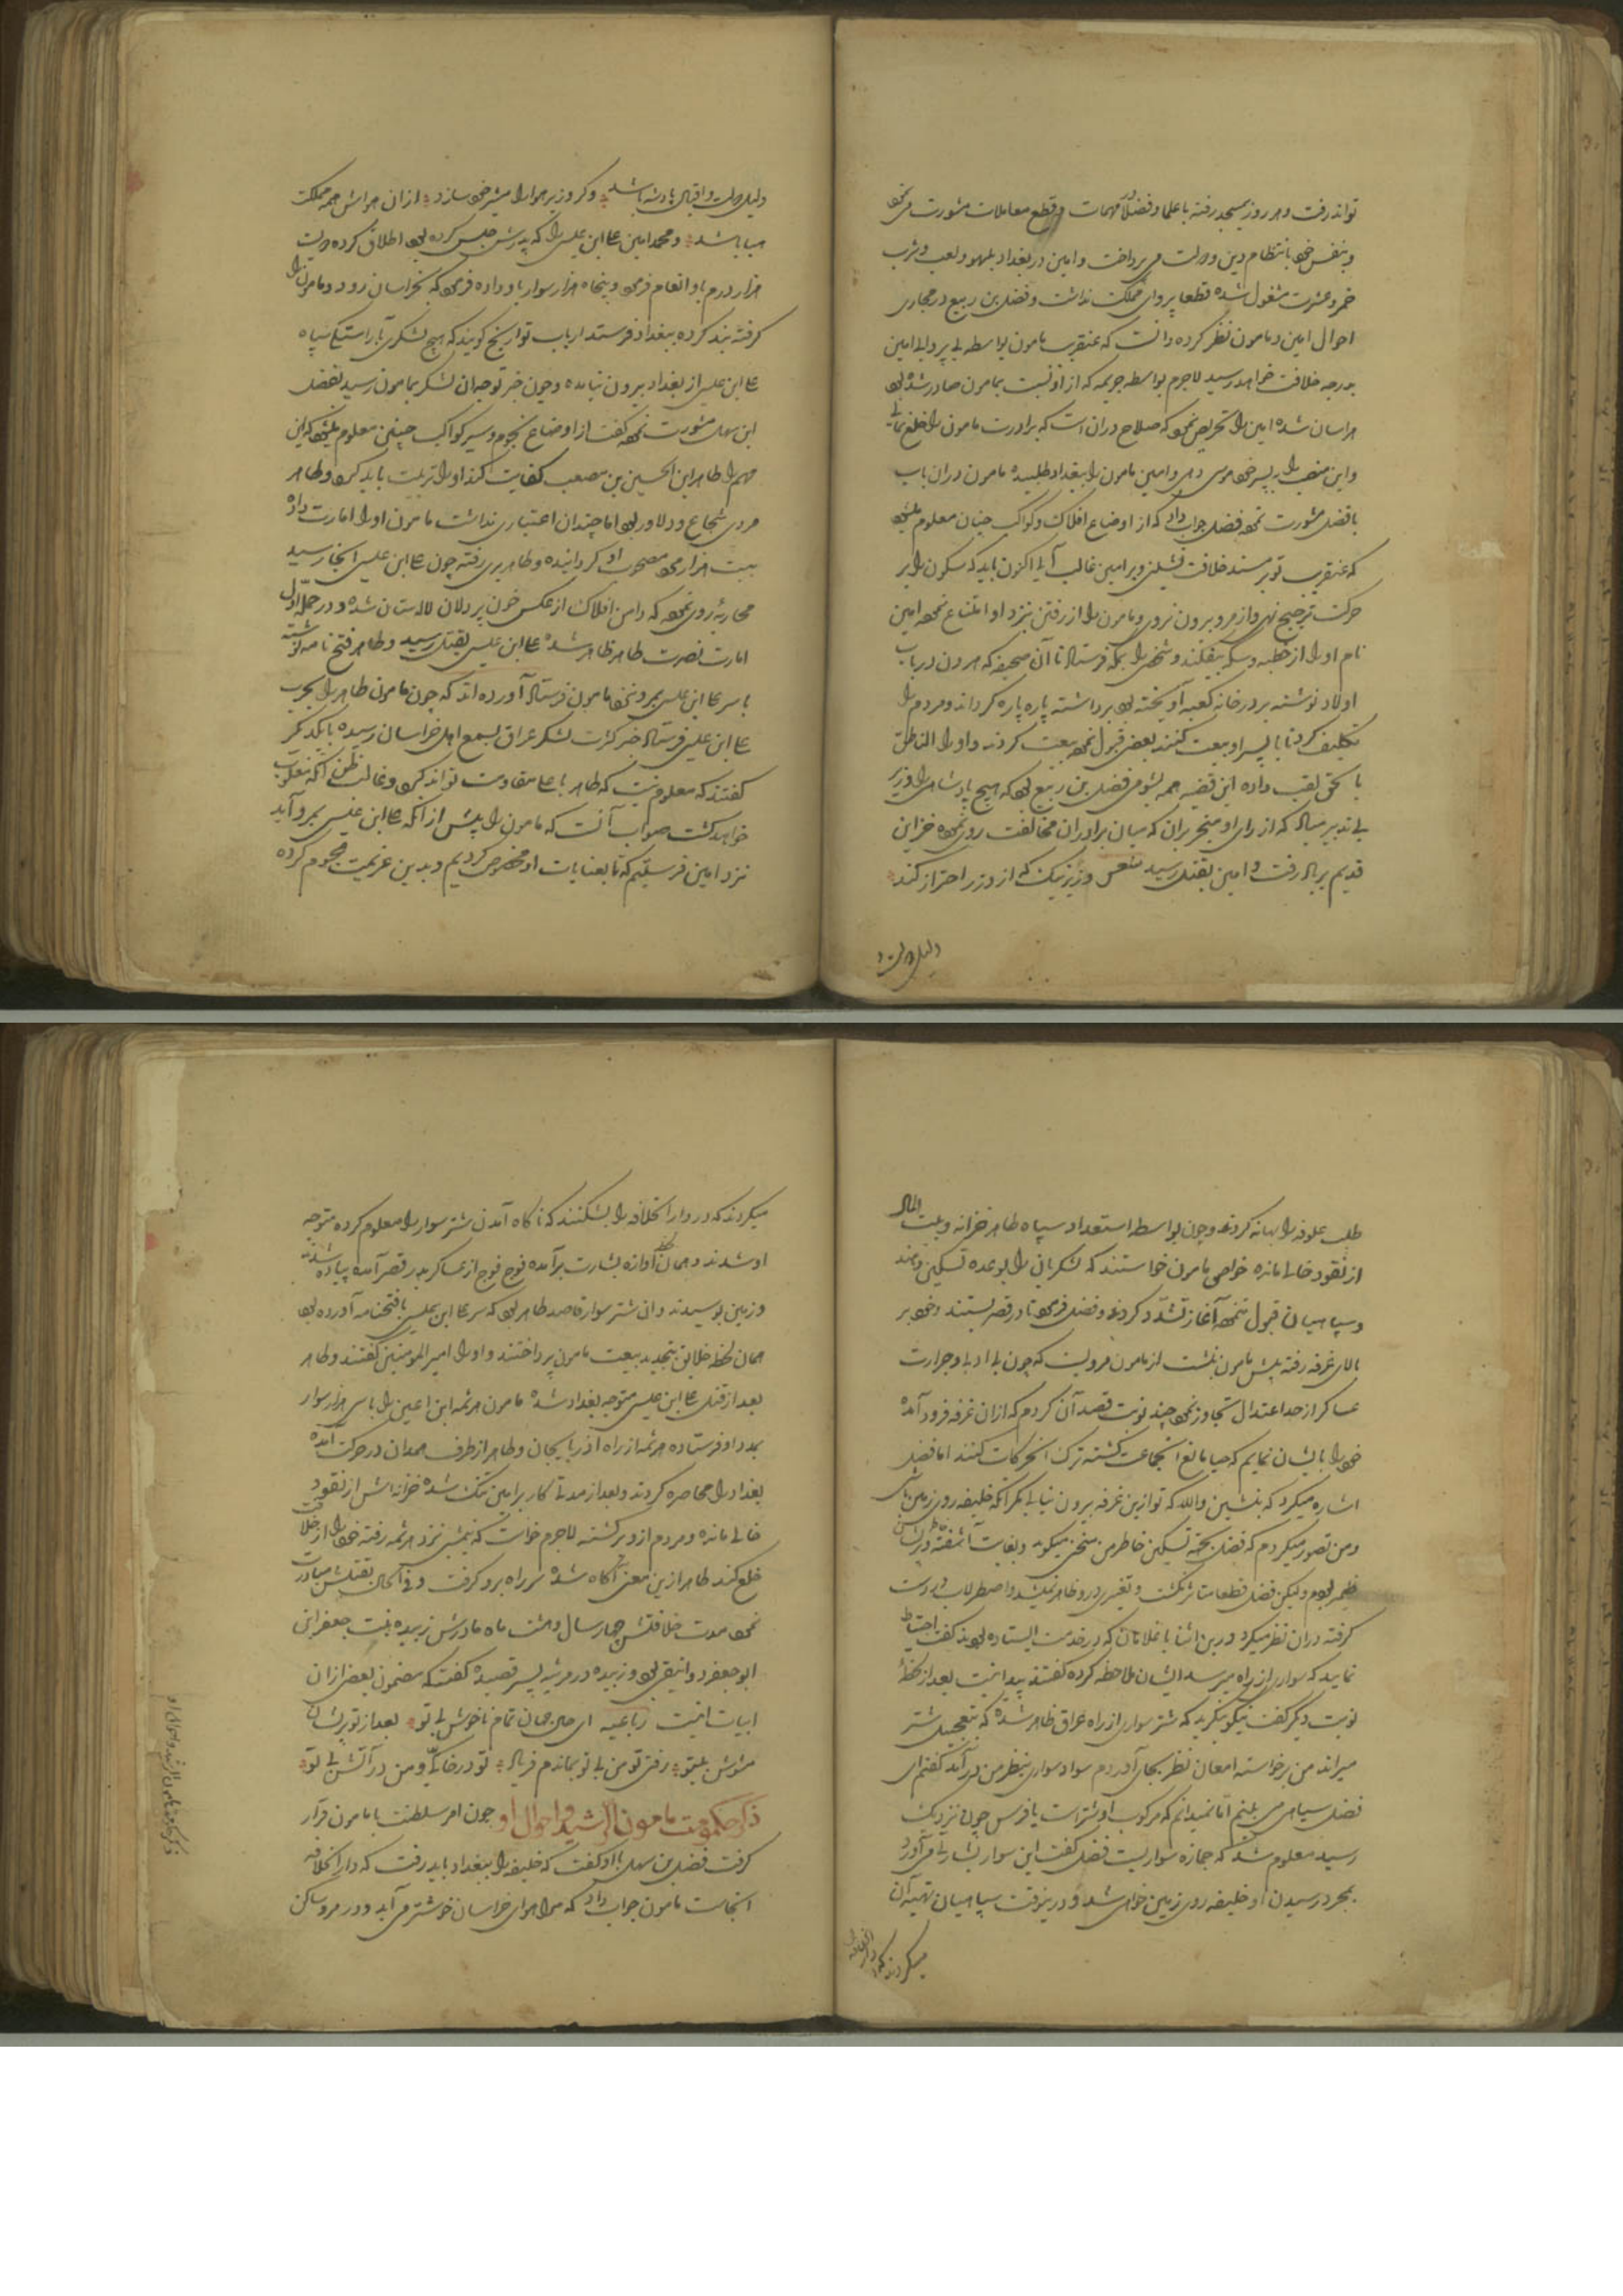 تواند رفت و هر روز بمسجد رفته با علما و فضلا در مهمات و قطع معاملات مشورت می نمود
و بنفس خود بانتظام دین و دولت می پرداخت و امین در بغداد بلهو و لعب و شرب
خمر و عشرت مشغول شده قطعا پروای مملکت نداشت و فضل بن ربیع در مجاری
احوال امین و مامون نظر کرده دانست که عنقریب مامون بواسطه بی پروایی امین
بدرجه خلافت خواهد رسید لاجرم بواسطه جریمه که از او نسبت بمامون صادر شده بود
هراسان شده امین را تحریض نمود که صلاح در آن است که برادرت مامون را خلع نمایی
و این منصب را به پسر خود موسی دهی و امین مامون را ببغداد طلبیده مامون در آن باب
با فضل مشورت نمود فضل جواب داد که از اوضاع افلاک و کواکب چنان معلوم میشود
که عنقریب تو بر مسند خلافت نشینی و بر امین غالب آیی اکنون باید که سکون را بر
حرکت ترجیح نهی و از مرو بیرون نروی و مامون را از رفتن بنزد او امتناع نمود امین
نام او را از خطبه و سکه بیفکند و شخصی را بمکه فرستاد تا آن صحیفه که هرون در باب
اولاد نوشته بر در خانه کعبه آویخته بود برداشته پاره پاره کرداند و مردم را
تکلیف کرد تا با پسر او بیعت کنند بعضی قبول نمود بیعت کردند و او را الناطق
بالحق لقب داده این قضیه همه بشومی فضل بن ربیع بود که هیچ پادشاهی را وزیر
بی تدبیر مباد که از رای او منجر بر آن که میان برادران مخالفت روی نمود خزاین
قدیم بر باد رفت و امین بقتل رسید شعر وزیر نیک که از وزر احتراز کند
دلیل دولت و
دلیل دولت و اقبال پادشه باشد و کر وزیر هوا را مشیر خود سازد از آن هواش همه مملکت
هبا باشد و محمد امین علی ابن عیسی را که پدرش حبس کرده بود اطلاق کرده دویست
هزار درم باو انعام فرمود و پنجاه هزار سوار باو داده فرمود که بخراسان رود و مامون را
کرفته بند کرده ببغداد فرستد ارباب تواریخ کویند که هیچ لشکری بآراستکی سپاه
علی ابن عیسی از بغداد بیرون نیامده و چون خبر توجه آن لشکر بمامون رسید بفضل
ابن سهل مشورت نمود گفت از اوضاع نجوم و سیر کواکب چنین معلوم میشود که این
مهم را طاهر ابن الحسین بن مصعب کفایت کند او را تربیت باید کرد و طاهر
مردی شجاع و دلاور بود اما چندان اعتباری نداشت مامون او را امارت داده
بیست هزار مرد مصحوب او کردانیده و طاهر بری رفته چون علی ابن عیسی آنجا رسید
محاربه روی نمود که دامن افلاک از عکس خون پردلان لاله ستان شده و در حمله اول
امارت نصرت طاهر ظاهر شده علی ابن عیسی بقتل رسید و طاهر فتح نامه نوشته
با سر علی ابن عیسی بمرو نزد مامون فرستاد آورده اند که چون مامون طاهر را بحرب
علی ابن عیسی فرستاد خبر کثرت لشکر عراق بسمع اهل خراسان رسیده با یکدیکر
کفتند که معلوم نیست که طاهر با علی مقاومت تواند کرد و غالب ظن آنکه مغلوب
خواهد کشت صواب آنست که مامون را پیش از آنکه علی ابن عیسی بمرو آید
نزد امین فرستیم که تا بعنایات او مخصوص کردیم و بدین عزیمت هجوم کرده
طلب علوفه را بهانه کردند و چون بواسطه استعداد سپاه طاهر خزانه و بیت المال
از نقود خالی مانده خواص مامون خواستند که لشکریان را بوعده تسکین دهند
و سپاهیان قبول ننمود آغاز تشدد کردند و فضل فرمود تا در قصر بستند و خود بر
بالای غرفه رفته پیش مامون بنشست از مامون مرویست که چون بی ادبی و جرات
عساکر از حد اعتدال تجاوز نمود چند نوبت قصد آن کردم که از آن غرفه فرود آمده
خود را بایشان نمایم که حیا مانع آنجماعت کشته ترک آن حرکات کنند اما فضل
اشاره میکرد که بنشین والله که تو ازین غرفه بیرون نیایی مکر آنکه خلیفه روی زمین باشی
و من تصور میکردم که فضل بجهت تسکین خاطر من سخن میکوید و بغایت آشفته و پریشان
خاطر بودم ولیکن فضل قطعا متاثر نکشت و تغییری در او ظاهر نمیشد و اصطرلاب در دست
کرفته در آن نظر میکرد و درین اثنا با غلامان که در خدمت ایستاده بودند کفت احتیاط
نمایید که سواری از راه میرسد ایشان ملاحظه کرده کفتند پیدا نیست بعد از لحظه
نوبت دیکر کفت نیکو بنکرید که شتر سواری از راه عراق ظاهر شده که بتعجیل شتر
میراند من برخواسته امعان نظر بجای آوردم سواد سواری بنظر من در آمد کفتم ای
فضل سیاهی می بینم اما نمیدانم که مرکوب او شتر است یا فرس چون نزدیک
رسید معلوم شد که جمازه سواریست فضل کفت این سوار بشارتی می آورد
بمجرد رسیدن او خلیفه روی زمین خواهی شد و درینوقت سپاهیان تهیه آن
میکردند که در دار الخلافه
میکردند که در دار الخلافه را بشکنند که ناکاه آمدن شتر سوار را معلوم کرده متوجه
او شدند و همان لحظه آوازه بشارت برآمده فوج فوج از عساکر بدر قصر آمده پیاده شدند
و زمین بوسیدند و آن شتر سوار قاصد طاهر بود که سر علی ابن عیسی با فتحنامه آورده بود
همان لحظه خلایق بتجدید بیعت مامون پرداختند و او را امیر المومنین کفتند و طاهر
بعد از قتل علی ابن عیسی متوجه بغداد شده مامون هرثمه ابن اعین را با سی هزار سوار
بمدد او فرستاده هرثمه از راه آذربایجان و طاهر از طرف همدان در حرکت آمده
بغداد را محاصره کردند و بعد از مدتی کار بر امین تنک شده خزانه اش از نقود
خالی مانده و مردم ازو برکشته لاجرم خواست که بشب نزد هرثمه رفته خود را از خلافت
خلع کند طاهر ازین معنی آکاه شده سر راه برو کرفت و فی الحال بقتلش مبادرت
نمود مدت خلافتش چهار سال و هشت ماه مادرش زبیده بنت جعفر ابن
ابو جعفر دوانیقی بود و زبیده در مرثیه پسر قصیده کفت که مضمون بعضی از آن
ابیات اینست رباعیه ای جان جهان تمام ناخوش بی تو بعد از تو پریشان
مشوش بیتو رفتی تو من بی تو بماندم فریاد تو در خاکی و من در آتش بی تو
ذکر حکومت مامون الرشید و احوال او چون امر سلطنت با مامون قرار
کرفت فضل بن سهل با او کفت که خلیفه را ببغداد باید رفت که دار الخلافه
آنجاست مامون جواب داد که مرا هوای خراسان خوشتر می آید و در مرو ساکن
ذکر حکومت مامون الرشید و احوال او